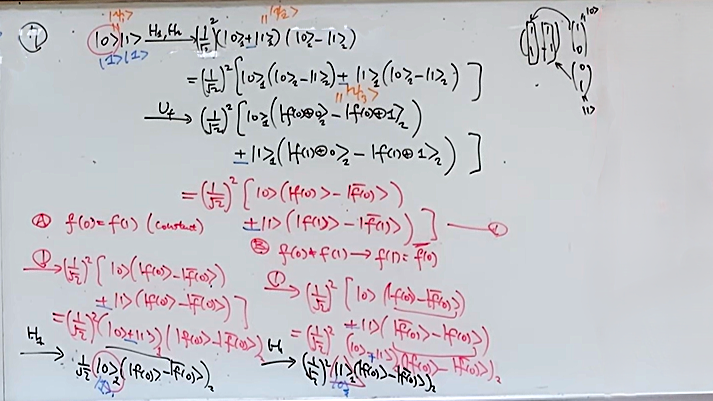 |ψ₁⟩ |ψ₂⟩
|0⟩|1⟩ —H₁,H₂→ (1/√2)² (|0⟩₁+|1⟩₁) (|0⟩₂−|1⟩₂)
|1⟩|1⟩
= (1/√2)² [|0⟩₁(|0⟩₂−|1⟩₂) + |1⟩₁(|0⟩₂−|1⟩₂)]
|ψ₃⟩
—U_f→ (1/√2)² [|0⟩₁(|f(0)⊕0⟩₂ − |f(0)⊕1⟩₂)
+ |1⟩₁(|f(1)⊕0⟩₂ − |f(1)⊕1⟩₂)]
= (1/√2)² [|0⟩(|f(0)⟩ − |f̄(0)⟩)
+ |1⟩(|f(1)⟩ − |f̄(1)⟩)] — ①
Ⓐ f(0)=f(1) (constant)
① → (1/√2)² [|0⟩(|f(0)⟩−|f̄(0)⟩)
+ |1⟩(|f(0)⟩−|f̄(0)⟩)]
= (1/√2)² (|0⟩+|1⟩)₁ (|f(0)⟩−|f̄(0)⟩)₂
H₁ → 1/√2 |0⟩ (|f(0)⟩−|f̄(0)⟩)₂
Ⓑ f(0)≠f(1) → f(1)=f̄(0)
① → (1/√2)² [|0⟩(|f(0)⟩−|f̄(0)⟩)
+ |1⟩(|f̄(0)⟩−|f(0)⟩)
= (1/√2)² (|0⟩+|1⟩)(|f(0)⟩−|f̄(0)⟩)₂
H → (1/√2)² |1⟩ (|f(0)⟩−|f̄(0)⟩)₂
|0⟩
|1⟩